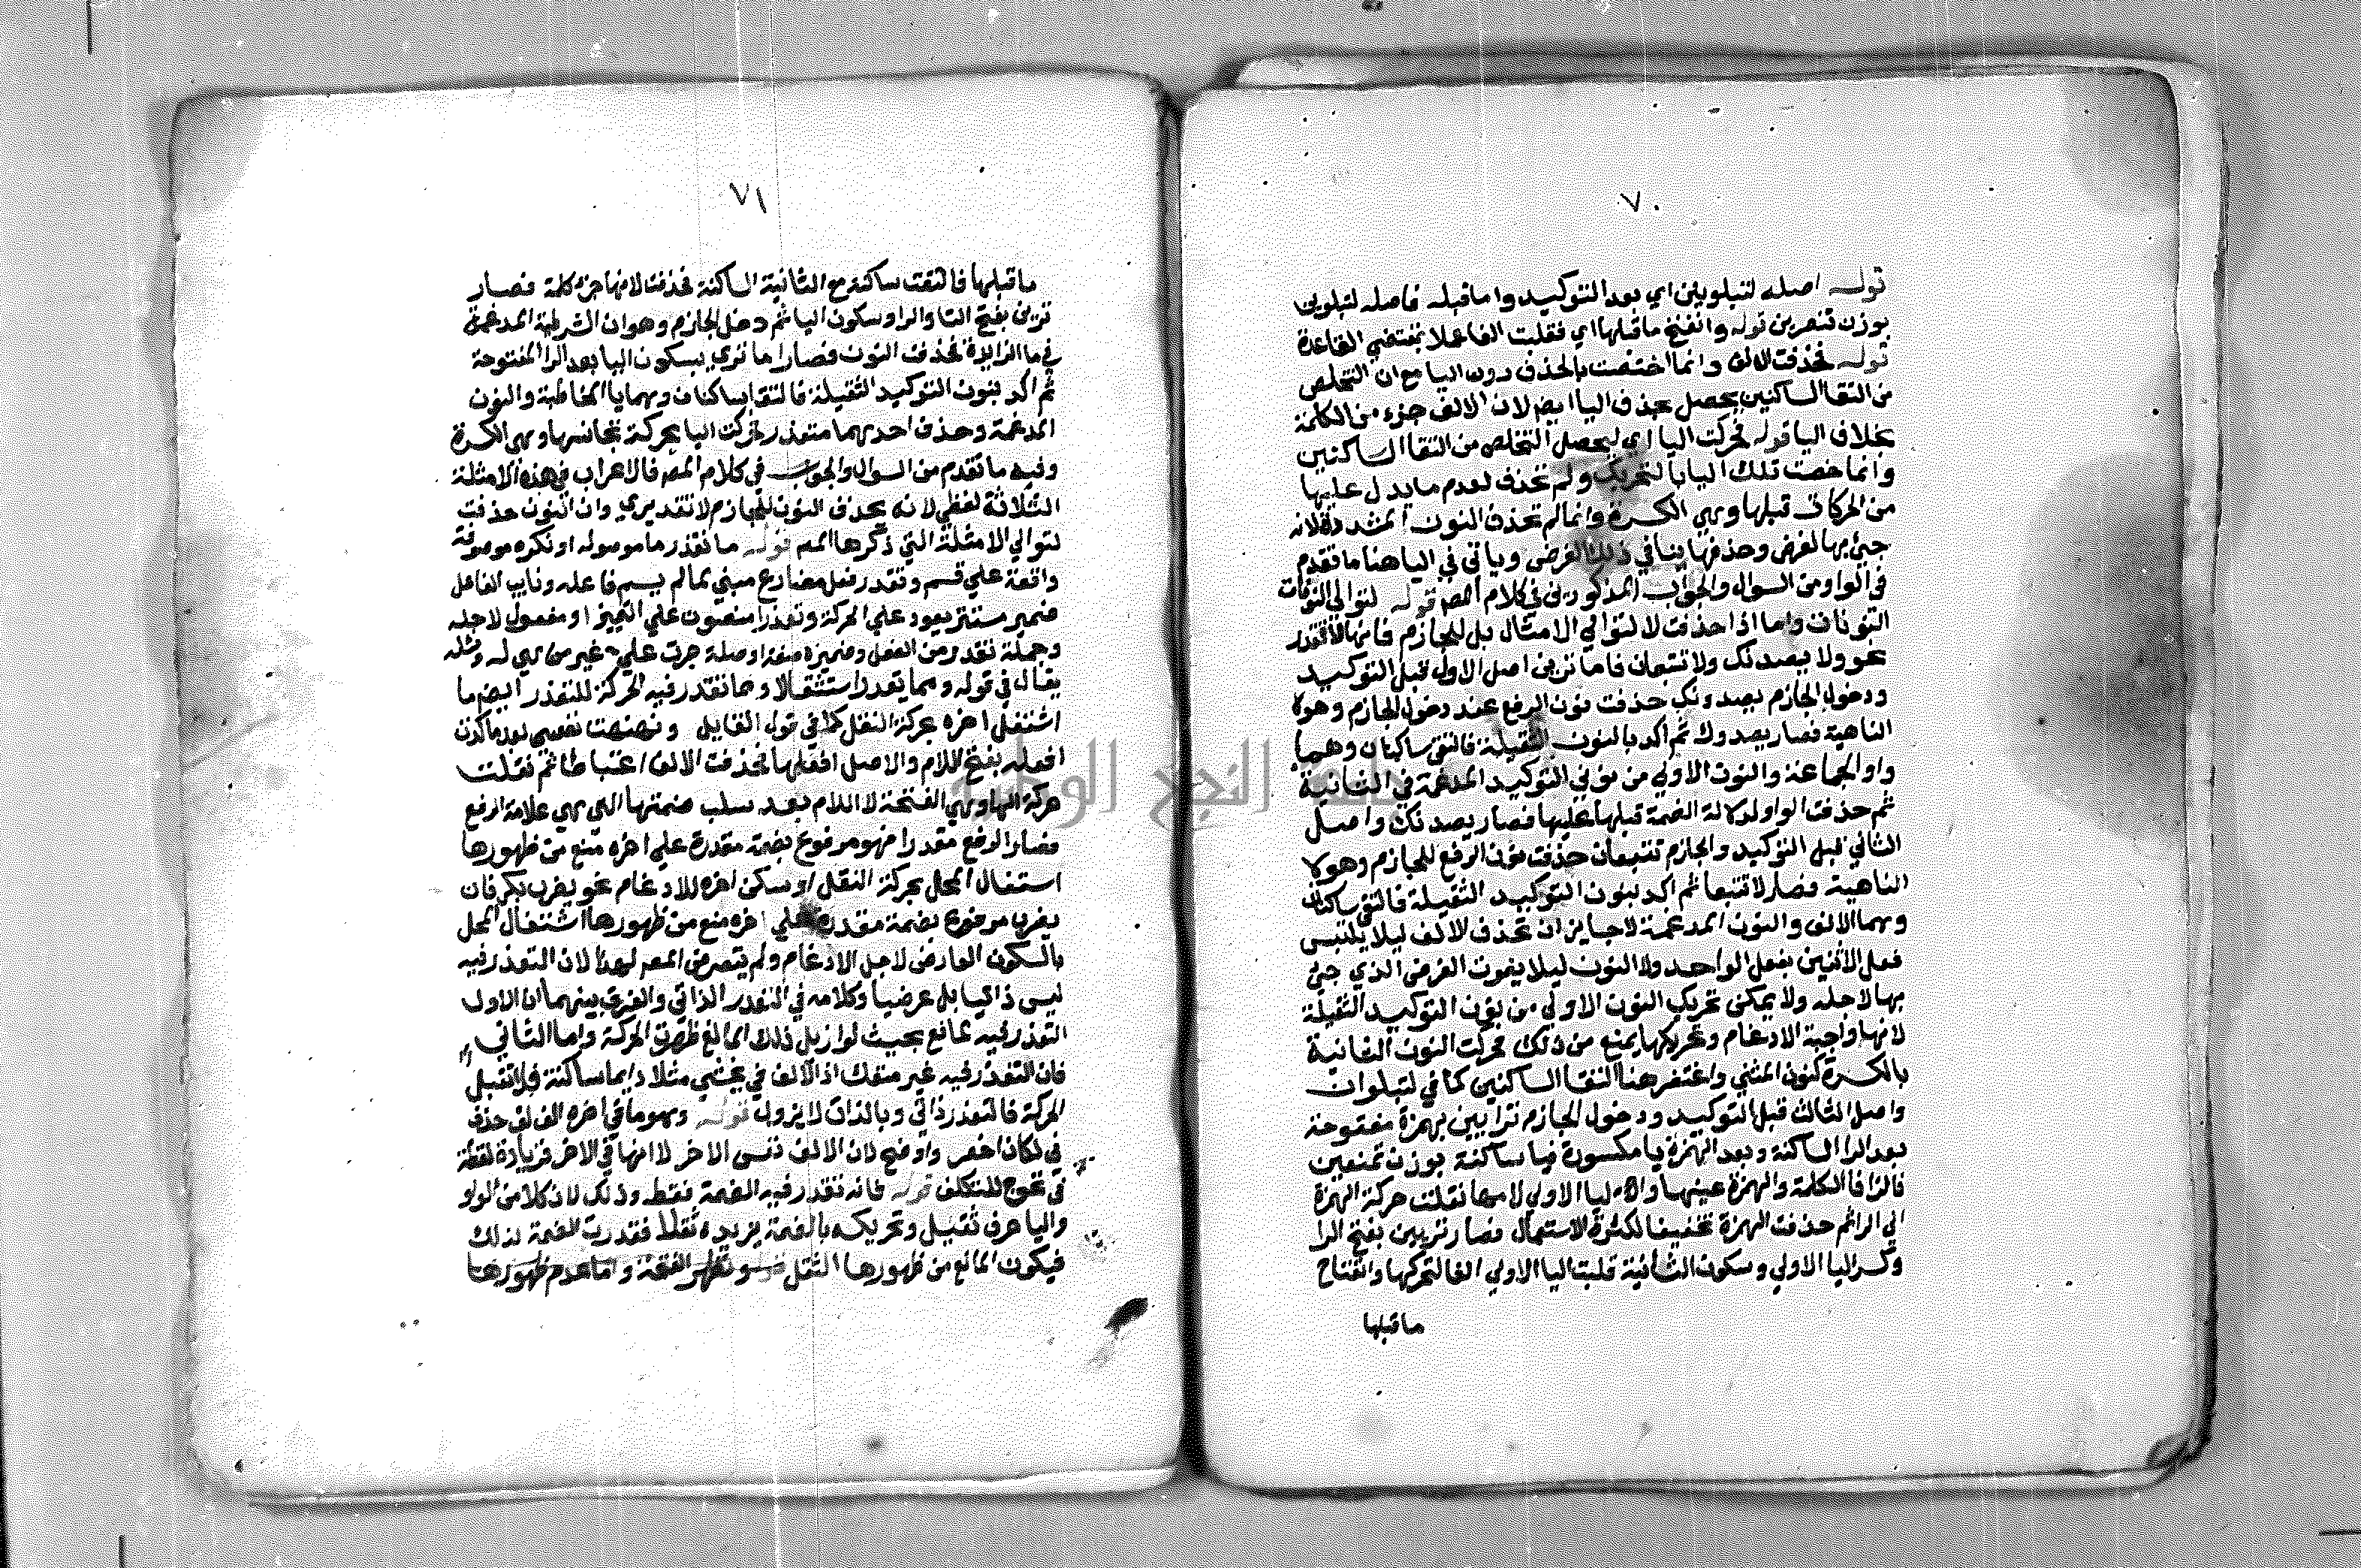 ٧٠
قوله اصله لتبلوينن اي بعد التوكيد واما قبله فاصله لتبلوين
بوزن تنصرين قوله وانفتح ما قبلها اي فقلبت الفا عملا بمقتضي القاعدة
قوله فحذفت الالف وانما اختصت بالحذف دون اليا مع ان التخلص
من التقا الساكنين يحصل بحذف اليا ايضا لان الالف جزء من الكلمة
بخلاف اليا قوله فحركت اليا اي ليحصل التخلص من التقا الساكنين
وانما خصت تلك اليا بالتحريك ولم تحذف لعدم ما يدل عليها
من الحركات قبلها وهي الكسرة وانما لم تحذف النون المشددة لانه
جئ بها لغرض وحذفها ينافي ذلك الغرض وياتي في اليا هنا ما تقدم
في الواو من السوال والجواب المذكورين في كلام المص قوله لتوالي النونات
النونات واما اذا حذفت لا لتوالي الامثال بل للجازم فانها لا تقدر
نحو ولا يصدنك ولا تتبعان فاما ترين اصل الاول قبل التوكيد
ودخول الجازم يصدونك حذفت نون الرفع عند دخول الجازم وهو لا
الناهية فصار يصدوك ثم اكد بالنون الثقيلة فالتقي ساكنان وهما
واو الجماعة والنون الاولي من نوني التوكيد المدغمة في الثانية
ثم حذفت الواو لدلالة الضمة قبلها عليها فصار يصدنك واصل
الثاني قبل التوكيد والجازم تتبعان حذفت نون الرفع للجازم وهو لا
الناهية فصار لا تتبعا ثم اكد بنون التوكيد الثقيلة فالتقي ساكنان
وهما الالف والنون المدغمة لا جايز ان تحذف الالف ليلا يلتبس
فعل الاثنين بفعل الواحد ولا النون ليلا يفوت الغرض الذي جئ
بها لاجله ولا يمكن تحريك النون الاولي من نون التوكيد الثقيلة
لانها واجبة الادغام وتحريكها يمنع من ذلك فحركت النون الثانية
بالكسرة كنون المثني واغتفر هنا التقا الساكنين كما في لتبلوان
واصل الثالث قبل التوكيد ودخول الجازم ترايين بهمزة مفتوحة
بعد الرا الساكنة وبعد الهمزة يا مكسورة فيا ساكنة بوزن تمنعين
فالرا فا الكلمة والهمزة عينها واليا الاولي لامها نقلت حركة الهمزة
الي الرا ثم حذفت الهمزة تخفيفا لكثرة الاستعمال فصار تريين بفتح الرا
وكسر اليا الاولي وسكون الثانية قلبت اليا الاولي الفا لتحركها وانفتاح
ما قبلها
٧١
ما قبلها فالتقت ساكنة مع الثانية الساكنة فحذفت لانها جزء كلمة فصار
ترين بفتح التا والرا وسكون اليا ثم دخل الجازم وهو ان الشرطية المدغمة
في ما الزايدة فحذفت النون فصار اما تري بسكون اليا بعد الرا المفتوحة
ثم اكد بنون التوكيد الثقيلة فالتقا ساكنان وهما يا المخاطبة والنون
المدغمة وحذف احدهما متعذر فحركت اليا بحركة تجانسها وهي الكسرة
وفيه ما تقدم من السوال والجواب في كلام المص فالاعراب في هذه الامثلة
الثلاثة لفظي لانه بحذف النون للجازم لا تقديري وان النون حذفت
لتوالي الامثلة التي ذكرها المص قوله ما تقدر ما موصوله او نكره موصوفة
واقعة علي قسم وتقدر فعل مضارع مبني لما لم يسم فاعله ونايب الفاعل
ضمير مستتر يعود علي الحركة وتعذرا منصوب علي التمييز او مفعول لاجله
وجملة تقدر من الفعل وضميره صفة او صلة جرت علي غير من هي له ومثله
يقال في قوله وما يقدر استثقالا ومما تقدر فيه الحركة للتعذر ايضا ما
اشتغل اخره بحركة النقل كما في قول القايل ونهنهت نفسي بعد ما كدت
افعله بفتح اللام والاصل افعلها فحذفت الالف اعتباطا ثم نقلت
حركة الها وهي الفتحة لا اللام بعد سلب ضمتها التي هي علامة الرفع
فصار الرفع مقدرا فهو مرفوع بضمة مقدرة علي اخره منع من ظهورها
اشتغال المحل بحركة النقل او سكن اخره للادغام نحو يضرب بكر فان
يضرب مرفوع بضمة مقدرة علي اخره منع من ظهورها اشتغال المحل
بالسكون العارض لاجل الادغام ولم يتعرض المص لهذا لان التعذر فيه
ليس ذاتيا بل عرضيا وكلامه في التعذر الذاتي والفرق بينهما ان الاول
التعذر فيه لمانع بحيث لو ازيل ذلك المانع ظهرت الحركة واما الثاني
فان التعذر فيه غير منفك اذ الالف في يخشي مثلا دايما ساكنة فلا تقبل
الحركة فالتعذر ذاتي وبالذات لا يزول قوله وهو ما في اخره الف لو حذف
في لكان اخصر واوضح لان الالف نفس الاخر لا انها في الاخر فزيادة لفظة
في تحوج للتكلف قوله فانه تقدر فيه الضمة فقط وذلك لان كلا من الواو
واليا حرف ثقيل وتحريكه بالضمة يزيده ثقلا فقدرت الضمة لذلك
فيكون المانع من ظهورها الثقل قوله وتظهر الفتحة واما عدم ظهورها